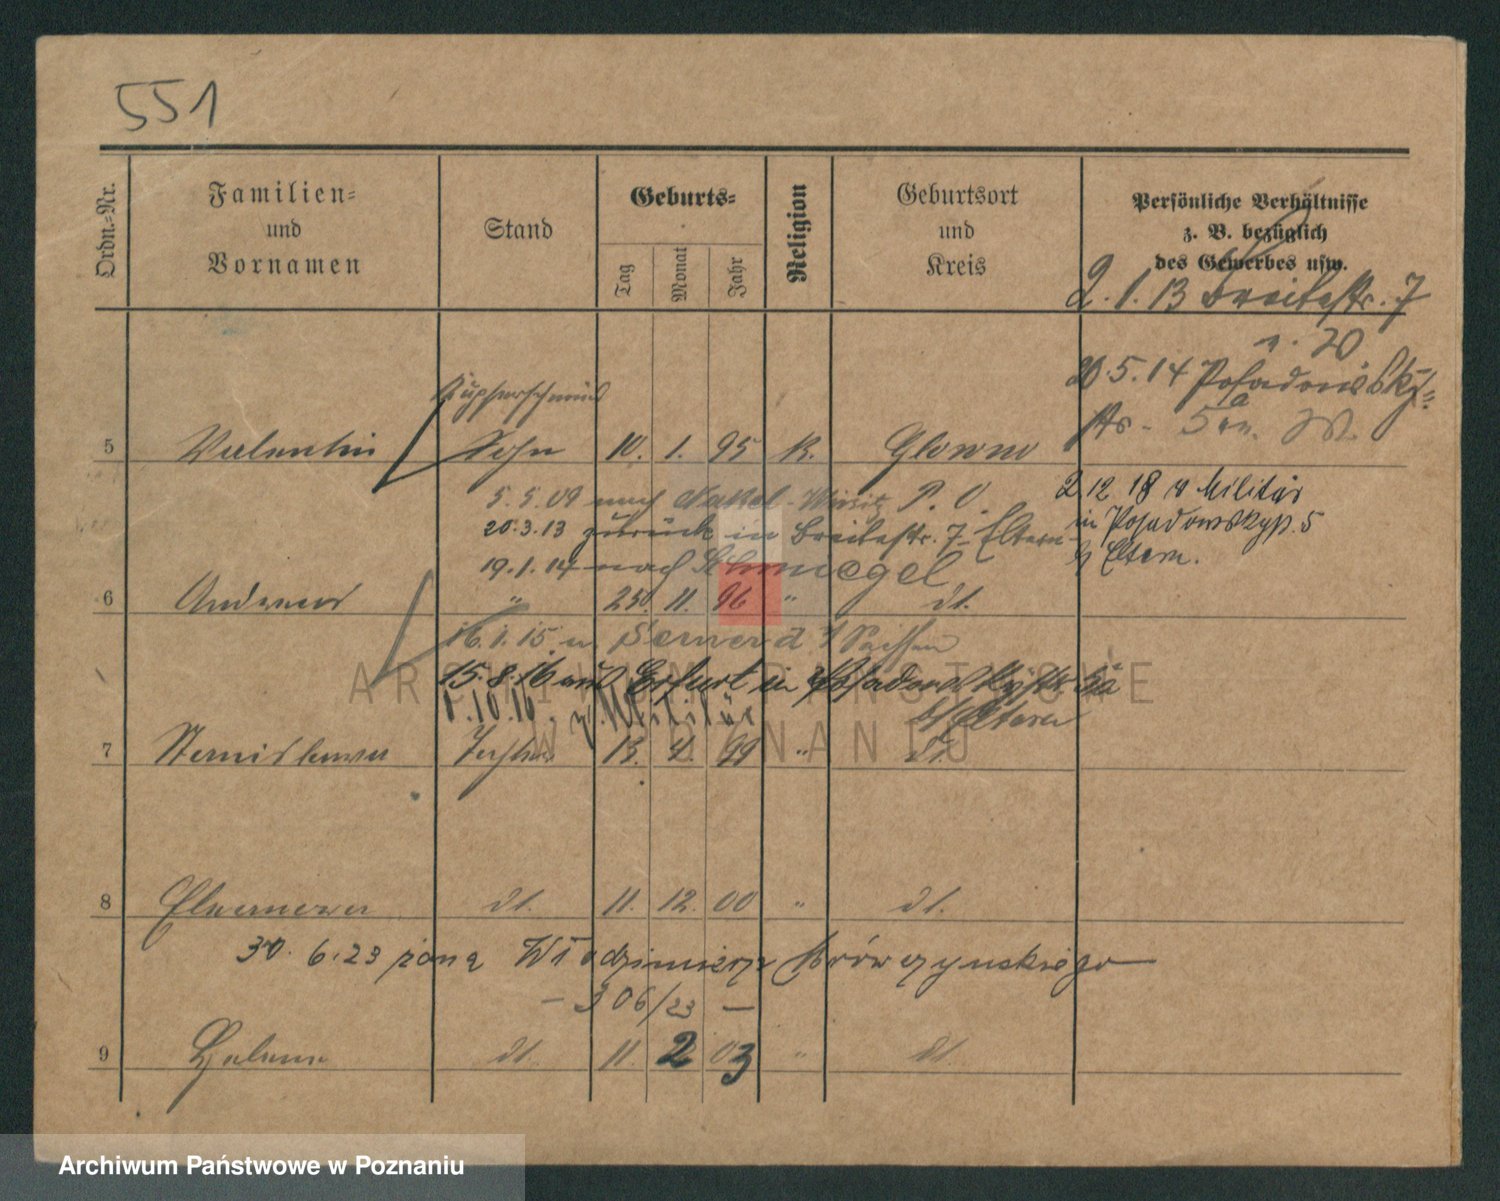 551
Ordn.-Nr.
Familien-
und
Vornamen
Stand
Geburts-
Tag
Monat
Jahr
Religion
Geburtsort
und
Kreis
Persönliche Verhältnisse
z. B. bezüglich
des Gewerbes usw.
2.1.13 Breitestr. 7
v. 20
20.5.14 Posadowsky-
str. 5a
Kupferschmied
5 Valentin Sohn 10. 1. 95 K. Glowno
5.5.09 nach Nakel-Wirsitz P. O.
20.3.13 zurück in Breitestr. 7 Eltern
19.1.14 nach Schmiegel
2.12.18 v Militär
in Posadowskystr. 5
b/ Eltern.
6 Andreas " 25. 11. 96 " dt.
16.1.15. n. Sachsen
15.8.16 aus Erfurt in Posadowskystr. 5a
b/ Eltern
1.10.16. z. Militär
7 Stanislawa Tochter 13. 4. 99 " dt.
8 dt. 11. 12. 00 " dt.
30.6.23 żona Włodzimierza Mrówczynskiego
- 306/23 -
9 Helene dt. 11. 2 03 " dt.
ARCHIWUM PAŃSTWOWE
W POZNANIU
Archiwum Państwowe w Poznaniu